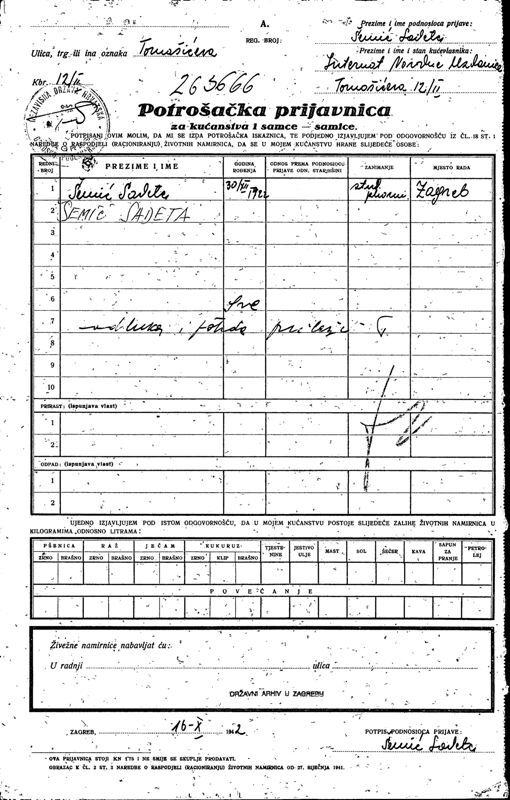 A.
REG. BROJ:
Prezime i ime podnosioca prijave:
Šemić Sadeta
Ulica, trg ili ina oznaka Tomašićeva
Prezime i ime i stan kućevlasnika:
Internat
Kbr. 12/II
Tomašićeva 12/II
265666
NEZAVISNA DRŽAVA HRVATSKA
Potrošačka prijavnica
za kućanstva i samce — samice.
POTPISANI OVIM MOLIM, DA MI SE IZDA POTROŠAČKA ISKAZNICA, TE POTJEDNO IZJAVLJUJEM POD ODGOVORNOŠĆU IZ ČL. 18 ST. 1
NAREDBE O RASPODJELI (RACIONIRANJU) ŽIVOTNIH NAMIRNICA, DA SE U MOJEM KUĆANSTVU HRANE SLIJEDEĆE OSOBE:
REDNI BROJ PREZIME I IME GODINA ROĐENJA ODNOS PREMA PODNOSIOCU PRIJAVE ODN. STARJEŠINI ZANIMANJE MJESTO RADA
1 Šemić Sadeta 30/XII 1922 Zagreb
2 ŠEMIĆ SADETA
3
4
5
6 Sve
7 odluka i prilaže
8
9
10
PRIRAST: (ispunjava vlast)
1
2
OTPAD: (ispunjava vlast)
1
2
UJEDNO IZJAVLJUJEM POD ISTOM ODGOVORNOŠĆU, DA U MOJEM KUĆANSTVU POSTOJE SLIJEDEĆE ZALIHE ŽIVOTNIH NAMIRNICA U
KILOGRAMIMA ODNOSNO LITRAMA:
PŠENICA RAŽ JEČAM KUKURUZ TJESTENINE JESTIVO ULJE MAST SOL ŠEĆER KAVA SAPUN ZA PRANJE PETROLEJ
ZRNO BRAŠNO ZRNO BRAŠNO ZRNO BRAŠNO ZRNO KLIP BRAŠNO
POVEĆANJE
Živežne namirnice nabavljat ću:
U radnji ulica
DRŽAVNI ARHIV U ZAGREBU
ZAGREB, 16-X 1942
POTPIS PODNOSIOCA PRIJAVE:
Šemić Sadeta
* OVA PRIJAVNICA STOJI KN 1'75 I NE SMIJE SE SKUPLJE PRODAVATI.
OBRAZAC K ČL. 2 ST. 2 NAREDBE O RASPODJELI (RACIONIRANJU) ŽIVOTNIH NAMIRNICA OD 27. SIJEČNJA 1941.